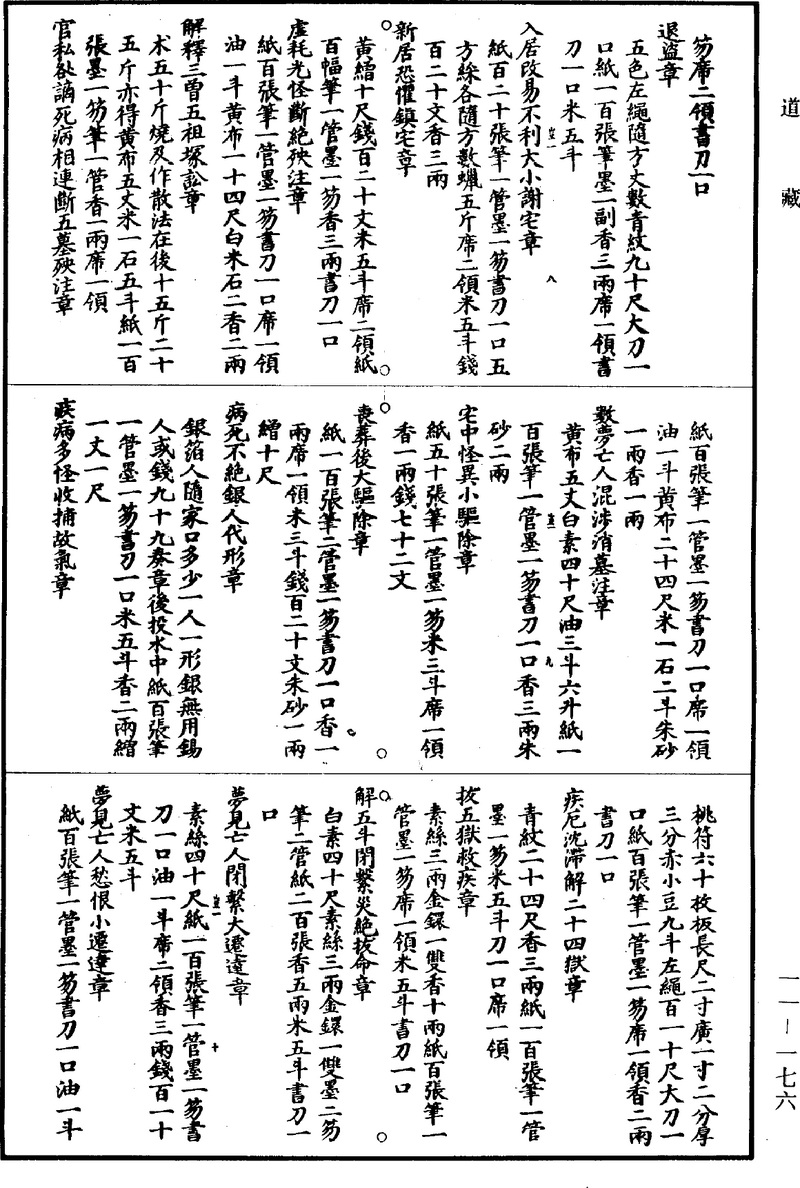 道藏
笏席二領書刀一口
退盜章
五色左繩隨方丈數青紋九十尺大刀一
口紙一百張筆墨一副香三兩席一領書
刀一口米五斗
入居改易不利大小謝宅章
紙百二十張筆一管墨一笏書刀一口五
方綵各隨方數蠟五斤席二領米五斗錢
百二十文香三兩
新居恐懼鎮宅章
黃繒十尺錢百二十文米五斗席二領紙
百幅筆一管墨一笏香三兩書刀一口
虛耗光怪斷絕殃注章
紙百張筆一管墨一笏書刀一口席一領
油一斗黃布一十四尺白米石二香二兩
解釋三曾五祖塚訟章
术五十斤燒及作散法在後十五斤二十
五斤亦得黃布五丈米一石五斗紙一百
張墨一笏筆一管香一兩席一領
官私咎謫死病相連斷五墓殃注章
紙百張筆一管墨一笏書刀一口席一領
油一斗黃布二十四尺米一石二斗朱砂
一兩香一兩
數夢亡人混涉消墓注章
黃布五丈白素四十尺油三斗六升紙一
百張筆一管墨一笏書刀一口香三兩朱
砂二兩
宅中怪異小驅除章
紙五十張筆一管墨一笏米三斗席一領
香一兩錢七十二文
喪葬後大驅除章
紙一百張筆二管墨一笏書刀一口香一
兩席一領米三斗錢百二十文朱砂一兩
繒十尺
病死不絕銀人代形章
銀箔人隨家口多少一人一形銀無用錫
人或錢九十九奏章後投水中紙百張筆
一管墨一笏書刀一口米五斗香二兩繒
一丈一尺
疾病多怪收捕故氣章
桃符六十枚板長尺二寸廣一寸二分厚
三分赤小豆九斗左繩百一十尺大刀一
口紙百張筆一管墨一笏席一領香二兩
書刀一口
疾厄沈滯解二十四獄章
青紋二十四尺香三兩紙一百張筆一管
墨一笏米五斗刀一口席一領
拔五獄救疾章
素絲三兩金鐶一雙香十兩紙百張筆一
管墨一笏席一領米五斗書刀一口
解五斗閉繫災絕拔命章
白素四十尺素絲三兩金鐶一雙墨二笏
筆二管紙二百張香五兩米五斗書刀一
口
夢見亡人閉繫大遷達章
素絲四十尺紙一百張筆一管墨一笏書
刀一口油一斗席二領香三兩錢百一十
文米五斗
夢見亡人愁恨小遷達章
紙百張筆一管墨一笏書刀一口油一斗
一一－一七六